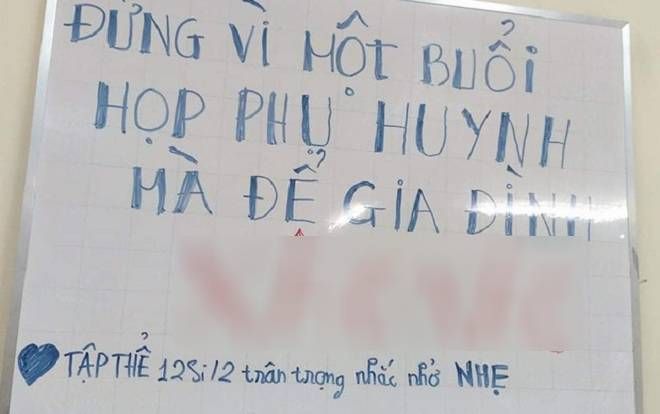 ĐỪNG VÌ MỘT BUỔI
HỌP PHỤ HUYNH
MÀ ĐỂ GIA ĐÌNH
TẬP THỂ 12Si/2 trân trọng nhắc nhở NHẸ